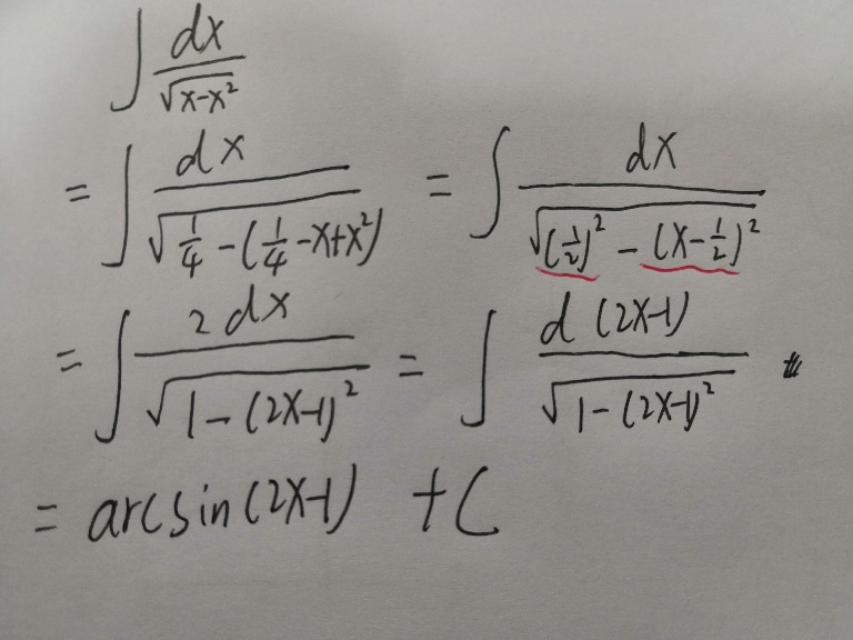 ∫ dx/√(x-x²)
= ∫ dx/√(1/4-(1/4-x+x²)) = ∫ dx/√((1/2)²-(x-1/2)²)
= ∫ 2dx/√(1-(2x-1)²) = ∫ d(2x-1)/√(1-(2x-1)²)
= arcsin(2x-1) + C